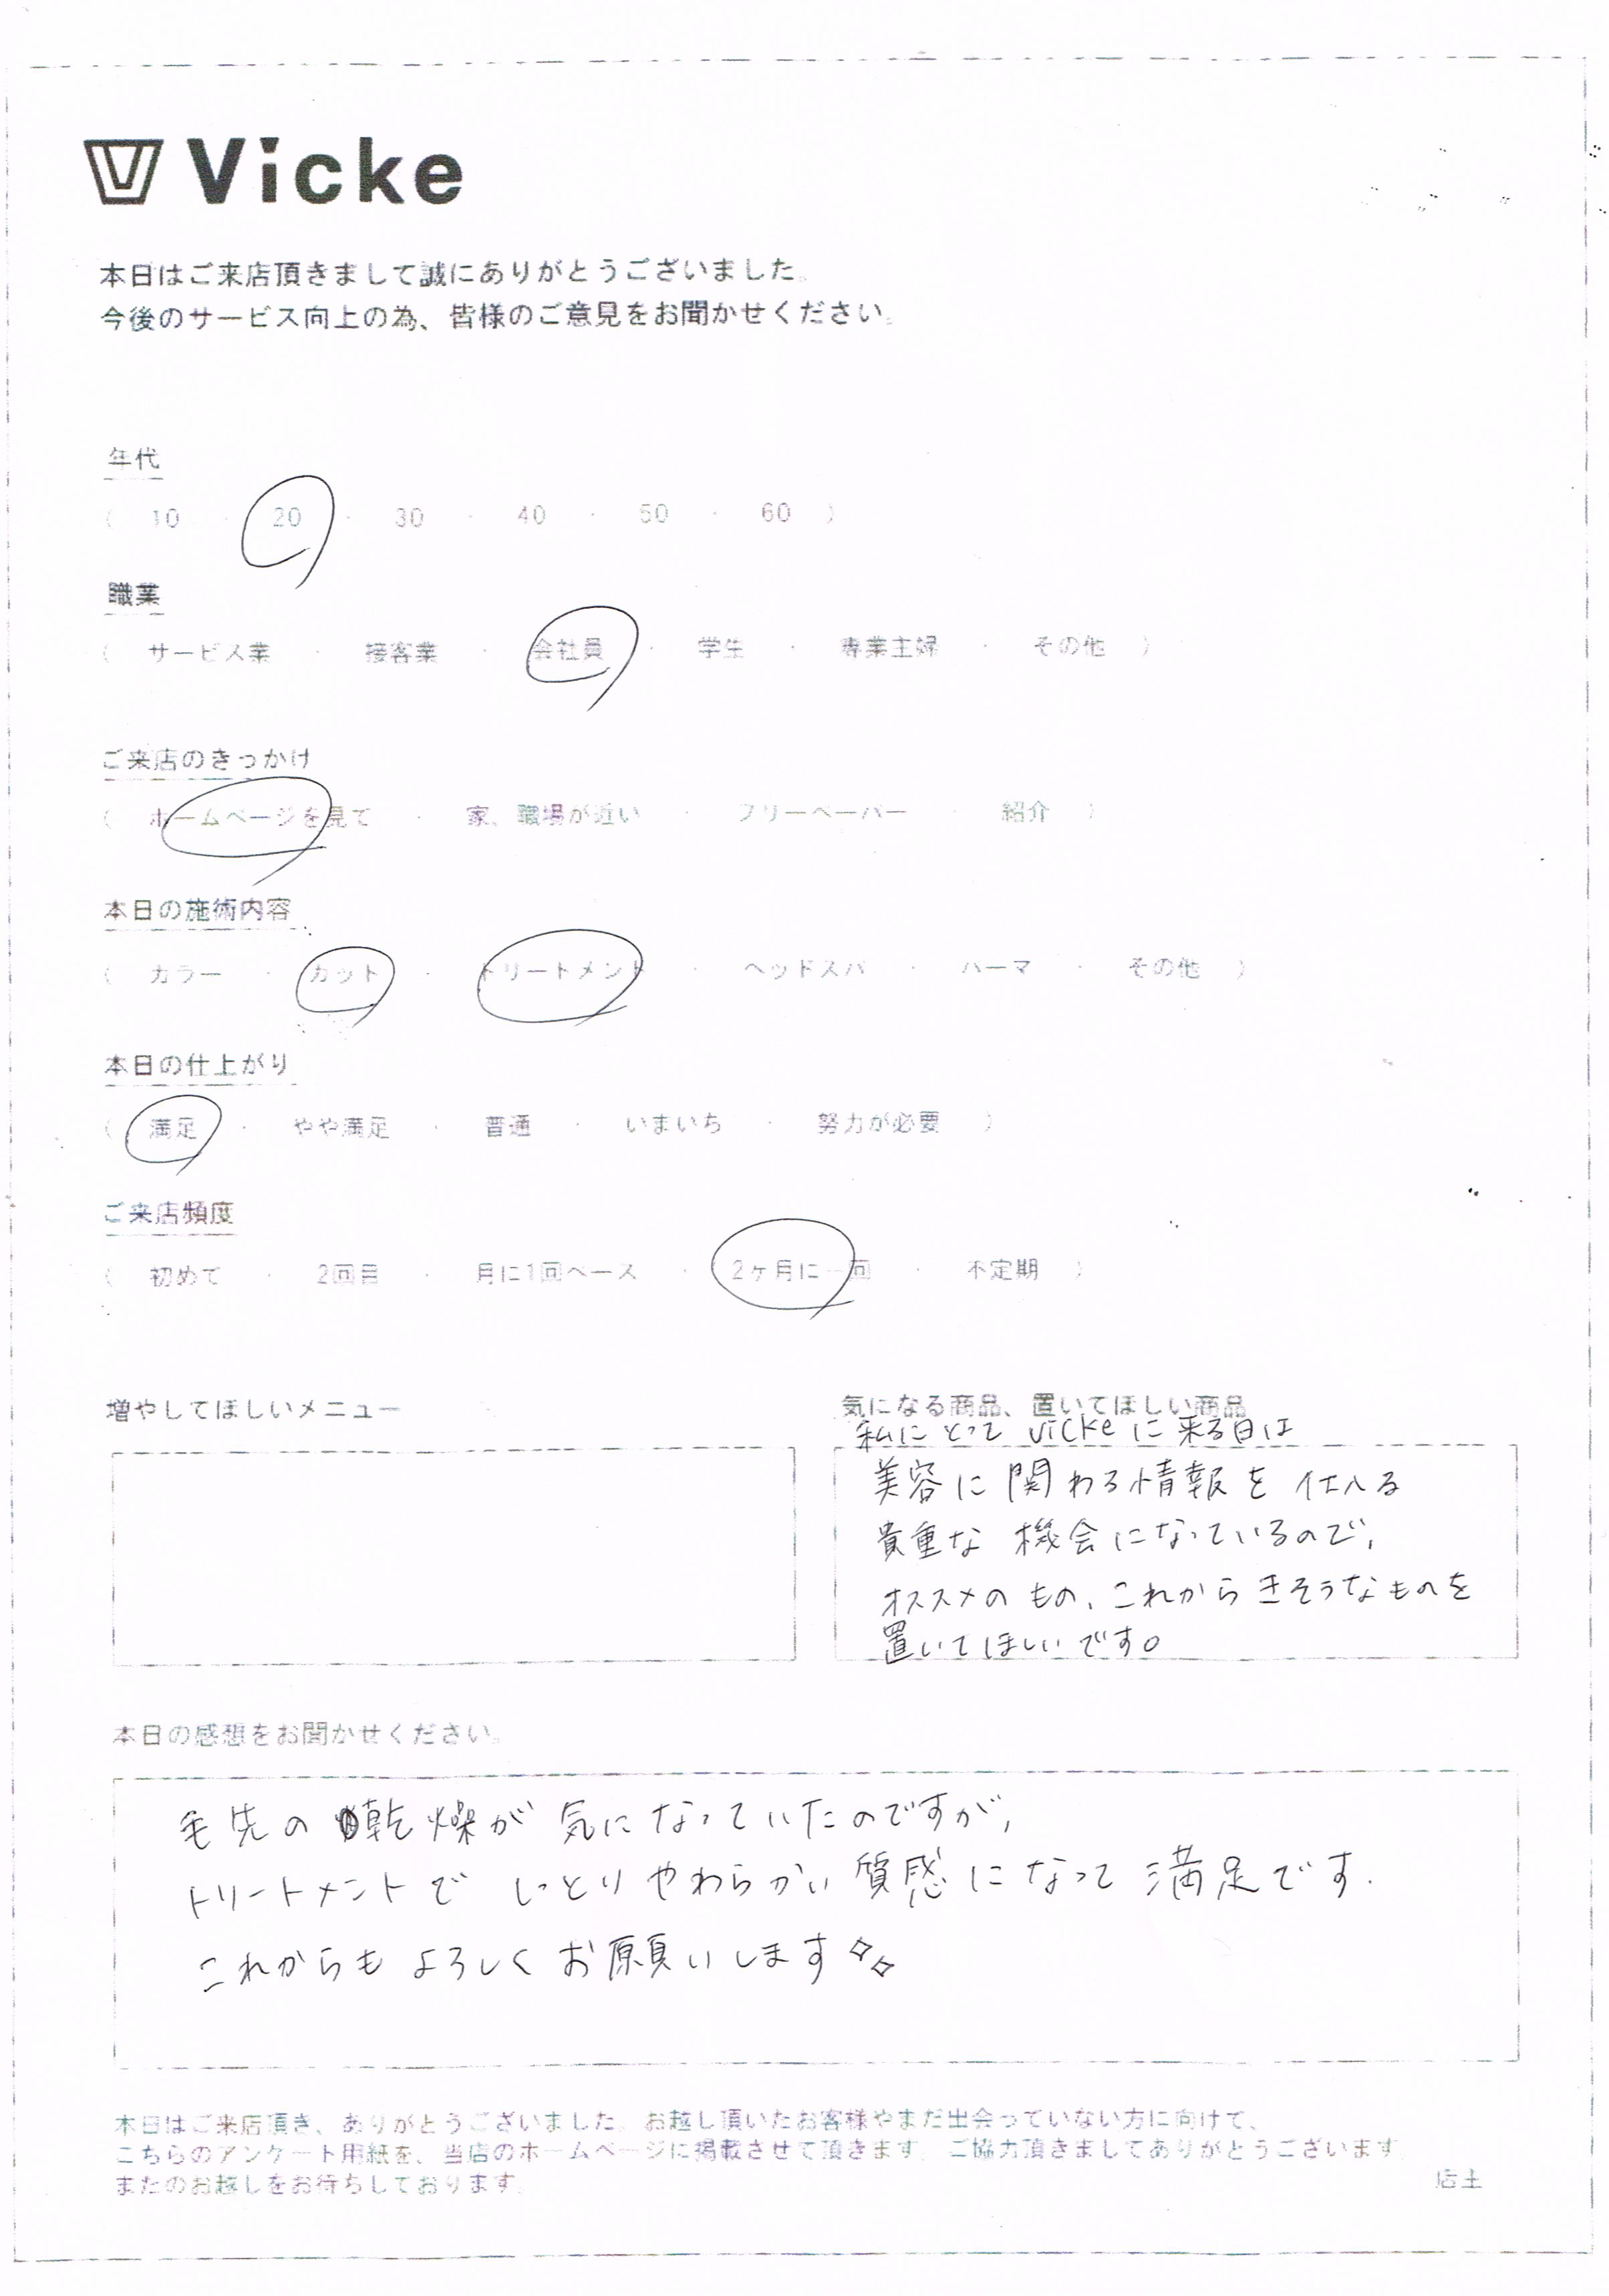 Vicke
本日はご来店頂きまして誠にありがとうございました。
今後のサービス向上の為、皆様のご意見をお聞かせください。
年代
( 10 · 20 · 30 · 40 · 50 · 60 )
職業
( サービス業 · 接客業 · 会社員 · 学生 · 専業主婦 · その他 )
ご来店のきっかけ
( ホームページを見て · 家、職場が近い · フリーペーパー · 紹介 )
本日の施術内容
( カラー · カット · トリートメント · ヘッドスパ · パーマ · その他 )
本日の仕上がり
( 満足 · やや満足 · 普通 · いまいち · 努力が必要 )
ご来店頻度
( 初めて · 2回目 · 月に1回ペース · 2ヶ月に一回 · 不定期 )
増やしてほしいメニュー
気になる商品、置いてほしい商品
私にとって Vickeに来る日は
美容に関わる情報を仕入る
貴重な機会になっているので、
オススメのもの、これからきそうなものを
置いてほしいです。
本日の感想をお聞かせください。
毛先の乾燥が気になっていたのですが、
トリートメントでしっとりやわらかい質感になって満足です.
これからもよろしくお願いします
本日はご来店頂き、ありがとうございました。お越し頂いたお客様やまだ出会っていない方に向けて、
こちらのアンケート用紙を、当店のホームページに掲載させて頂きます。ご協力頂きましてありがとうございます。
またのお越しをお待ちしております。
店主